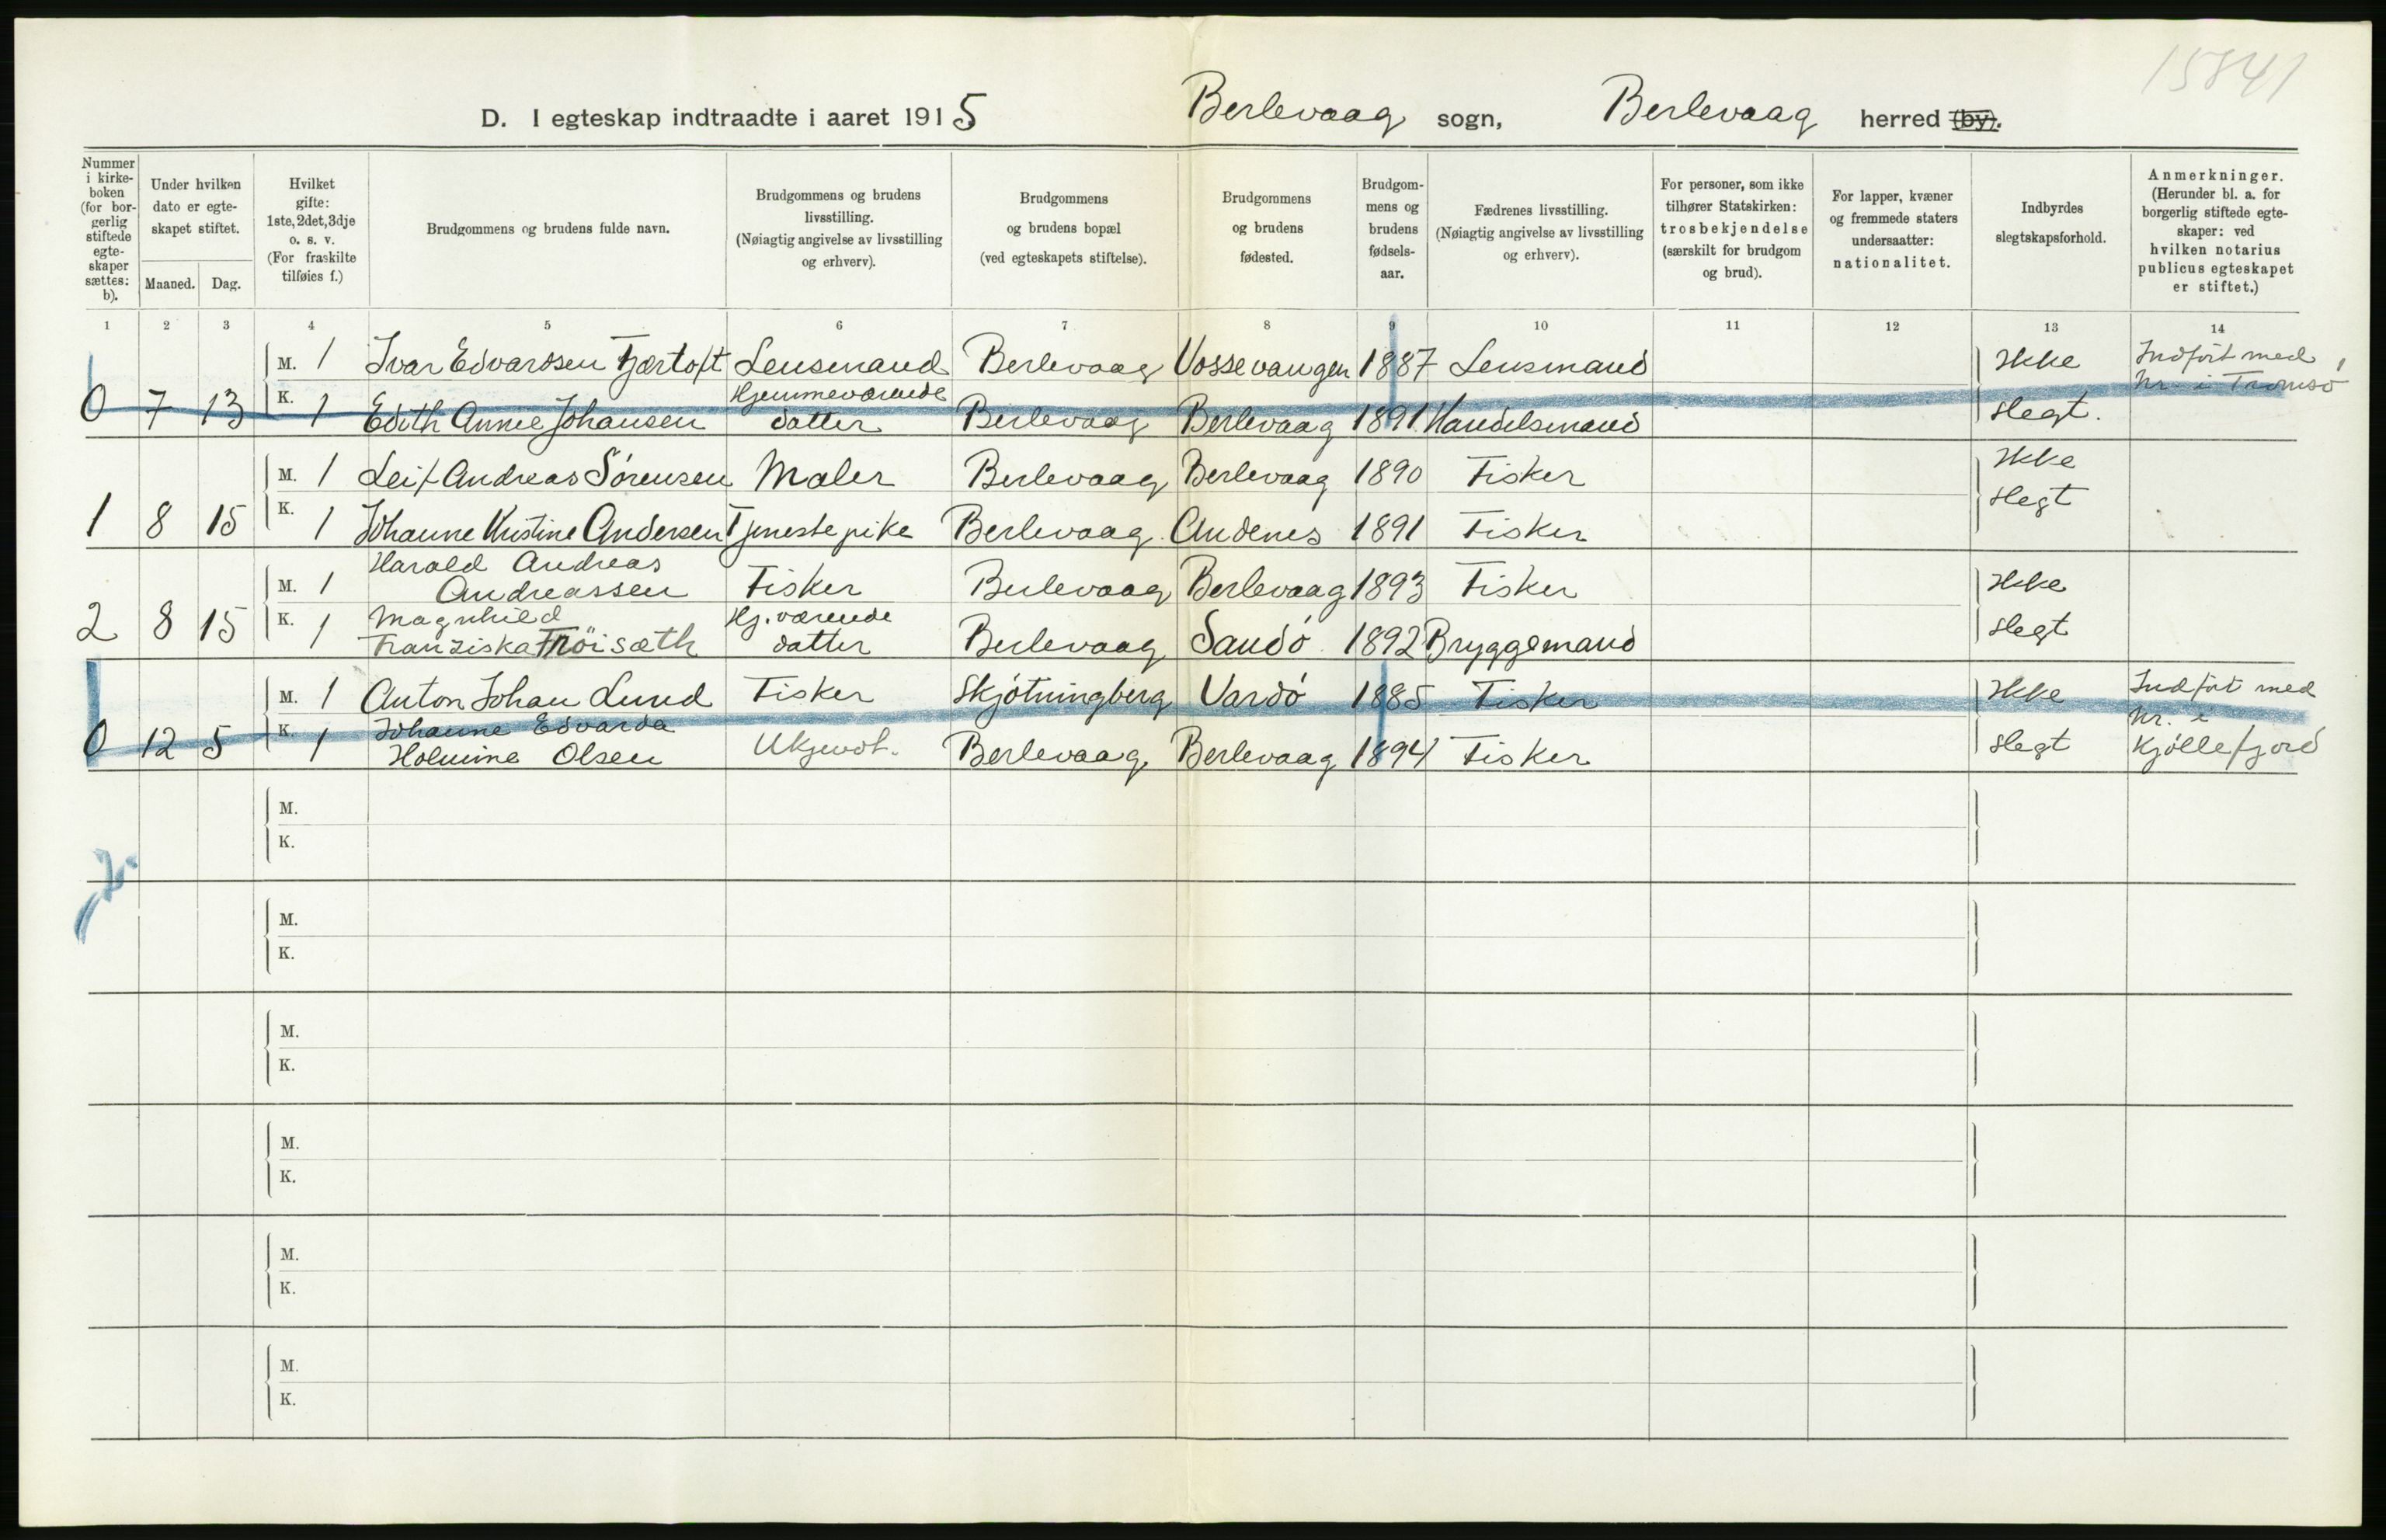 15841
D. I egteskap indtraadte i aaret 1915 Berlevaag sogn, Berlevaag herred (by).
Nummer i kirkeboken (for borgerlig stiftede egteskaper sættes: b).
Under hvilken dato er egteskapet stiftet.
Maaned. Dag.
Hvilket gifte: 1ste, 2det, 3dje o. s. v. (For fraskilte tilføies f.)
Brudgommens og brudens fulde navn.
Brudgommens og brudens livsstilling. (Nøiagtig angivelse av livsstilling og erhverv).
Brudgommens og brudens bopæl (ved egteskapets stiftelse).
Brudgommens og brudens fødested.
Brudgommens og brudens fødselsaar.
Fædrenes livsstilling. (Nøiagtig angivelse av livsstilling og erhverv).
For personer, som ikke tilhører Statskirken: trosbekjendelse (særskilt for brudgom og brud).
For lapper, kvæner og fremmede staters undersaatter: nationalitet.
Indbyrdes slegtskapsforhold.
Anmerkninger. (Herunder bl. a. for borgerlig stiftede egteskaper: ved hvilken notarius publicus egteskapet er stiftet.)
1 2 3 4 5 6 7 8 9 10 11 12 13 14
M. 1 Ivar Edvardsen Fjærtoft Lensmand Berlevaag Vossevangen 1887 Lensmand Ikke Indført med
0 7 13 K. 1 Edith Annie Johansen Hjemmeværende datter Berlevaag Berlevaag 1891 Handelsmand slegt. nr. i Tromsø
M. 1 Leif Andreas Sørensen Maler Berlevaag Berlevaag 1890 Fisker Ikke
1 8 15 K. 1 Johanne Kristine Andersen Tjenestepike Berlevaag Andenes 1891 Fisker slegt
M. 1 Harald Andreas Andreassen Fisker Berlevaag Berlevaag 1893 Fisker Ikke
2 8 15 K. 1 Magnhild Franziska Trøisæth Hj. værende datter Berlevaag Sandø 1892 Bryggemand slegt
M. 1 Anton Johan Lund Fisker Skjøtningberg Vardø 1885 Fisker Ikke Indført med
0 12 5 K. 1 Johanne Edvarda Holmine Olsen Ukjendt. Berlevaag Berlevaag 1894 Fisker slegt nr. i Kjøllefjord
M.
K.
M.
K.
M.
K.
M.
K.
M.
K.
M.
K.